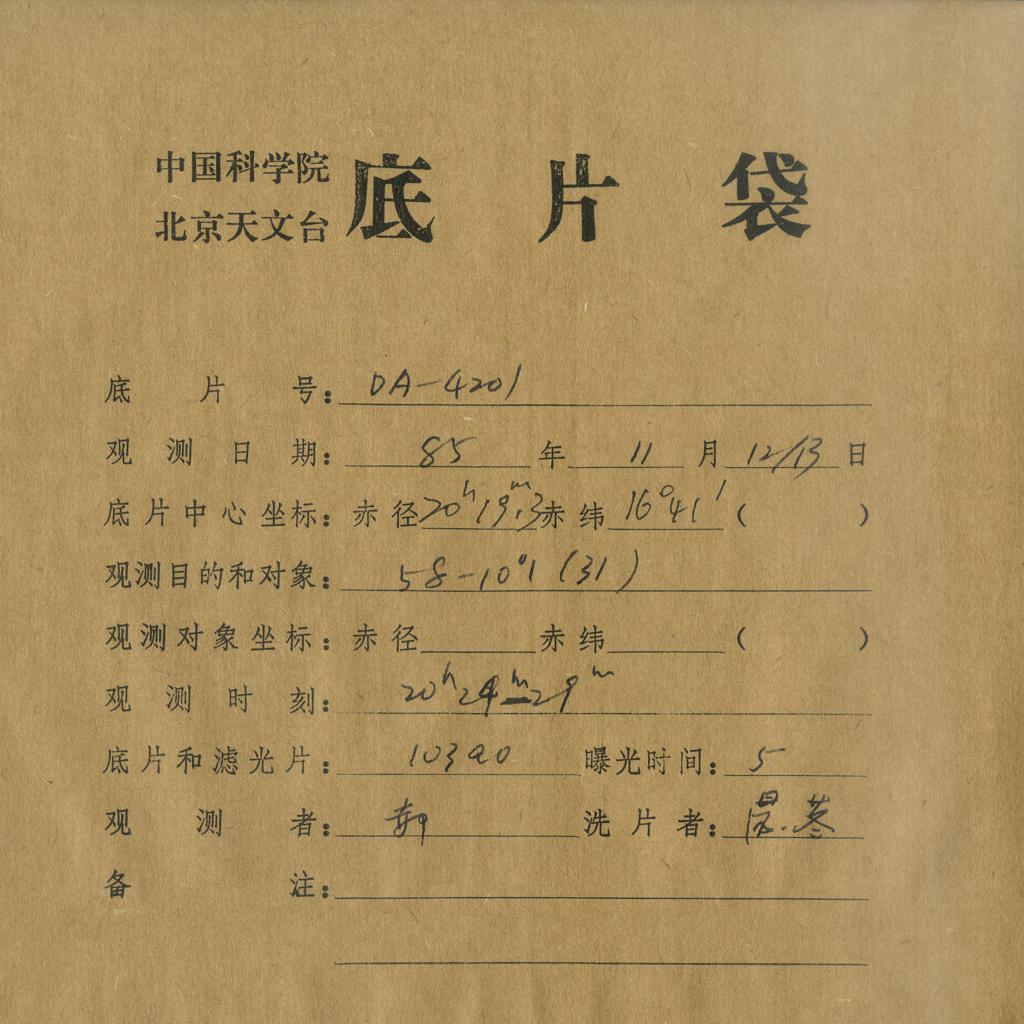 中国科学院
北京天文台
底片袋
底片号: DA-4201
观测日期: 85年11月12/13日
底片中心坐标: 赤径20ʰ19ᵐ.3赤纬16°41′( )
观测目的和对象: 58-10°1 (31)
观测对象坐标: 赤径 赤纬 ( )
观测时刻: 20ʰ24ᵐ-29ᵐ
底片和滤光片: 103aO 曝光时间: 5
观测者: 洗片者:
备注: